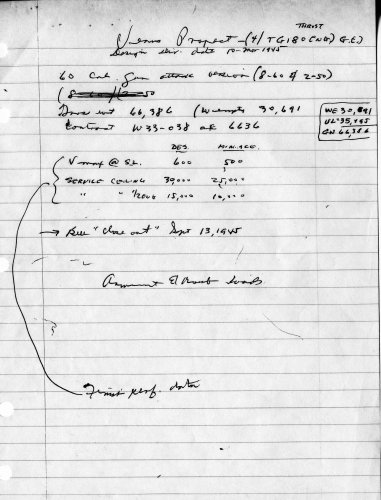 THRUST
Venus Project - (4/ TG180 ENG) G.E.)
Design dir. date 10-Mar 1945
60 Cal. Gun attack version (8-60 & 2-50)
Gross wt 66,386 (W empty 30,691
WE 30,691
UL 35,695
GW 66,386
Contract W33-038 ac 6636
DES. MIN. ACC.
V max @ S.L. 600 500
SERVICE CEILING 30,000 25,000
" " 1/2 ENG 15,000 10,000
→ Bell "Close out" Sept 13, 1945
Armament & bomb loads
Finish perf. data